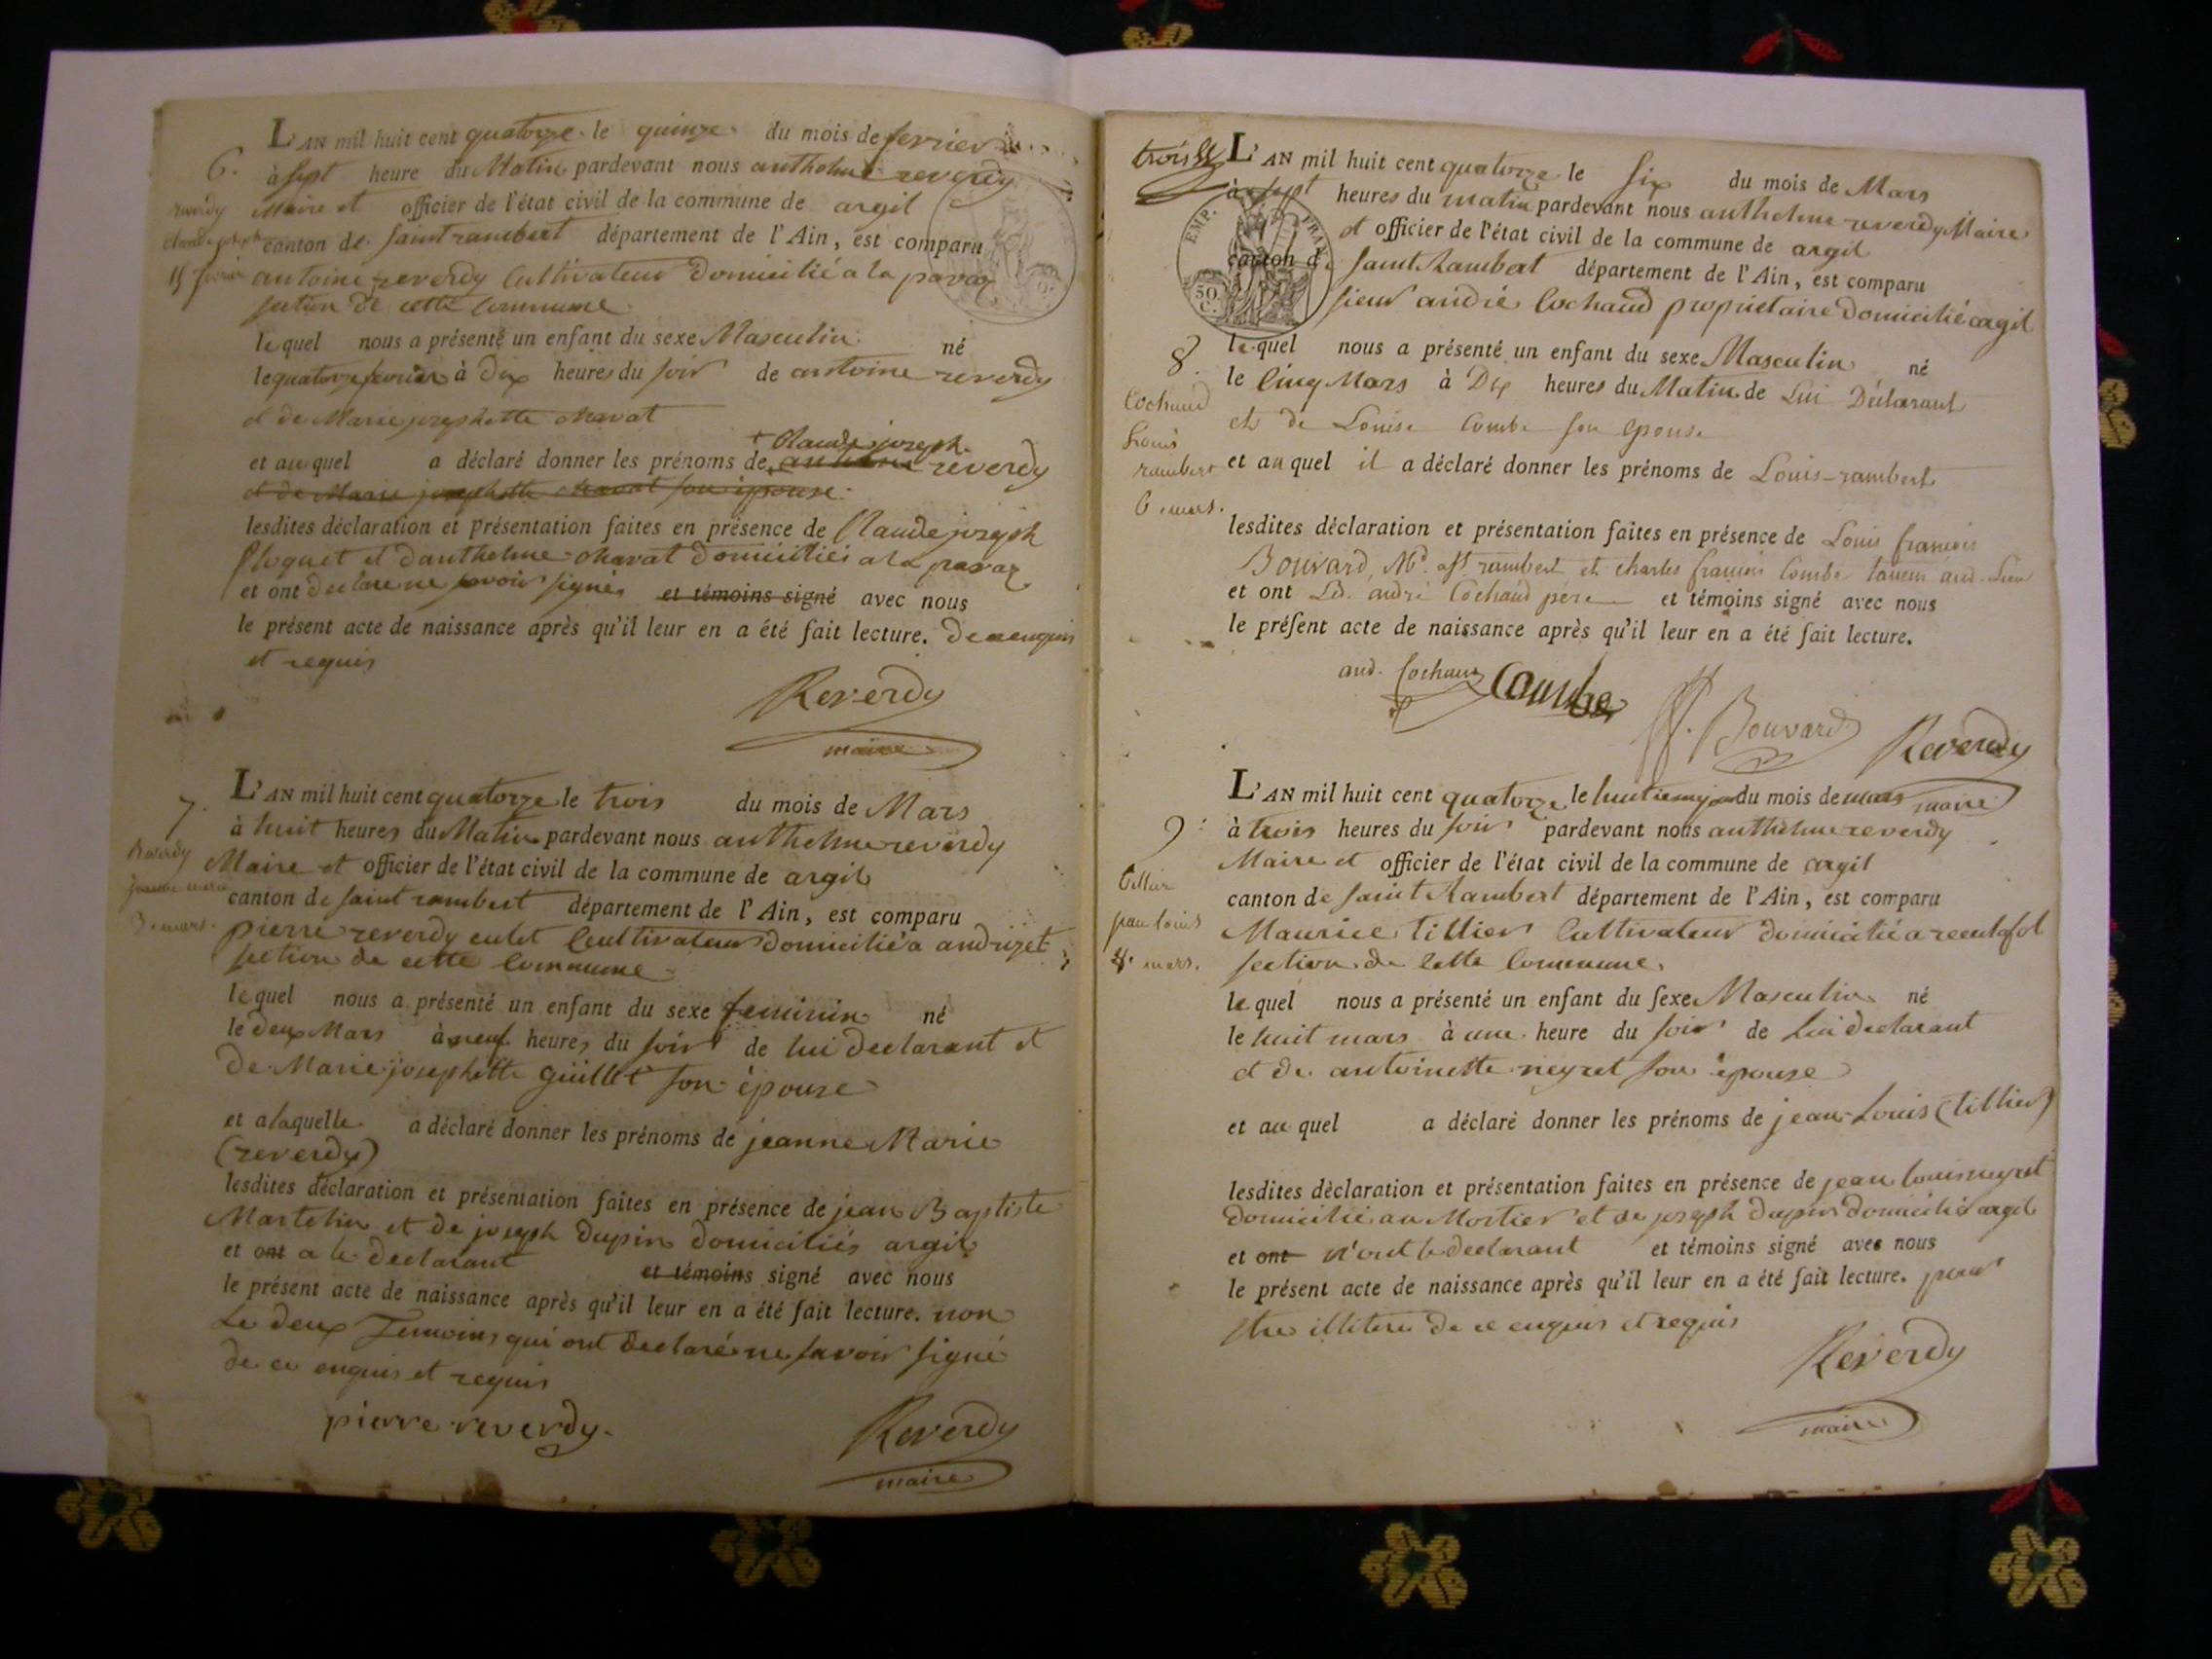 L'AN mil huit cent quatorze le quinze du mois de fevrier
6. à sept heure du Matin pardevant nous anthelme reverdy
reverdy Maire et officier de l'état civil de la commune de argil
claude joseph canton de Saint rambert département de l'Ain, est comparu
15 fevrier antoine reverdy Cultivateur Domicilié a la
section de cette Commune
lequel nous a présenté un enfant du sexe Masculin né
le quatorze fevrier à Dix heures du soir de antoine reverdy
et de Marie josephette chavat
+ Claude joseph
et au quel a déclaré donner les prénoms de reverdy
et de Marie josephette chavat son épouse
lesdites déclaration et présentation faites en présence de Claude joseph
et D'anthelme chavat Domiciliés a la
et ont declaré ne savoir signés et témoins signé avec nous
le présent acte de naissance après qu'il leur en a été fait lecture. De ce enquis
et requis
Reverdy
maire
L'AN mil huit cent quatorze le trois du mois de Mars
7. à huit heures du Matin pardevant nous anthelme reverdy
Reverdy Maire et officier de l'état civil de la commune de argil
jeanne marie canton de Saint rambert département de l'Ain, est comparu
3 mars. pierre reverdy culet Cultivateur Domicilié a andrizet
section de cette Commune
lequel nous a présenté un enfant du sexe feminin né
le deux Mars à neuf heures du soir de lui declarant et
De Marie josephette guillet son épouse
et a laquelle a déclaré donner les prénoms de jeanne Marie
(reverdy)
lesdites déclaration et présentation faites en présence de jean Baptiste
Martelin et de joseph Dupin domiciliés argil
et ont a le declarant et témoins signé avec nous
le présent acte de naissance après qu'il leur en a été fait lecture. non
Le deux Temoins qui ont declaré ne savoir signé
de ce enquis et requis
pierre reverdy.
Reverdy
maire
trois
L'AN mil huit cent quatorze le six du mois de Mars
à sept heures du matin pardevant nous anthelme reverdy Maire
et officier de l'état civil de la commune de argil
EMP. FRAN.
50 C.
canton de Saint Rambert département de l'Ain, est comparu
sieur andré Cochaud propriétaire Domicilié argil
lequel nous a présenté un enfant du sexe Masculin né
8. le Cinq Mars à Dix heures du Matin de Lui Déclarant
Cochaud et de Louise Combe son épouse
Louis
rambert et au quel il a déclaré donner les prénoms de Louis-rambert
6 mars.
lesdites déclaration et présentation faites en présence de Louis francois
Bouvard, Md. a St rambert et charles françois Combe taneur aud. Lieu
et ont Led. andré Cochaud pere et témoins signé avec nous
le présent acte de naissance après qu'il leur en a été fait lecture.
and. Cochaud Combe
Bouvard Reverdy
maire
L'AN mil huit cent quatorze le huitieme jour du mois de mars
9. à trois heures du soir pardevant nous anthelme reverdy
Maire et officier de l'état civil de la commune de argil
tillier canton de Saint Rambert département de l'Ain, est comparu
jean louis Maurice tillier Cultivateur domicilié a reculafol
8. mars. section de Cette Commune.
lequel nous a présenté un enfant du sexe Masculin né
le huit mars à une heure du soir de Lui declarant
et de antoinette neyret son épouse
et au quel a déclaré donner les prénoms de jean-Louis (tillier)
lesdites déclaration et présentation faites en présence de jean louis neyret
Domicilié au Mortier et de joseph Dupin Domicilié argil
et ont n'ont le declarant et témoins signé avec nous
le présent acte de naissance après qu'il leur en a été fait lecture. pour
être illitere de ce enquis et requis
Reverdy
maire